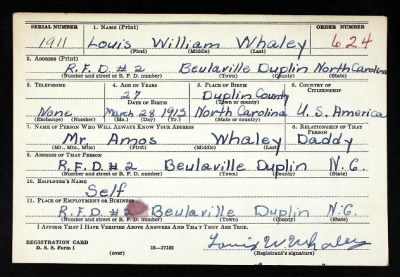 SERIAL NUMBER 1. NAME (Print) ORDER NUMBER
1911 Louis William Whaley 624
(First) (Middle) (Last)
2. ADDRESS (Print)
R.F.D. #2 Beulaville Duplin North Carolina
(Number and street or R. F. D. number) (Town) (County) (State)
3. TELEPHONE 4. AGE IN YEARS 5. PLACE OF BIRTH 6. COUNTRY OF CITIZENSHIP
27 Duplin County
DATE OF BIRTH (Town or county)
None March 28 1913 North Carolina U.S. America
(Exchange) (Number) (Mo.) (Day) (Yr.) (State or country)
7. NAME OF PERSON WHO WILL ALWAYS KNOW YOUR ADDRESS 8. RELATIONSHIP OF THAT PERSON
Mr Amos Whaley Daddy
(Mr., Mrs., Miss) (First) (Middle) (Last)
9. ADDRESS OF THAT PERSON
R.F.D. #2 Beulaville Duplin N.C.
(Number and street or R. F. D. number) (Town) (County) (State)
10. EMPLOYER'S NAME
Self
11. PLACE OF EMPLOYMENT OR BUSINESS
R.F.D. #2 Beulaville Duplin N.C.
(Number and street or R. F. D. number) (Town) (County) (State)
I AFFIRM THAT I HAVE VERIFIED ABOVE ANSWERS AND THAT THEY ARE TRUE.
REGISTRATION CARD
D. S. S. Form 1 16—17105 Louis W Whaley
(over) (Registrant's signature)